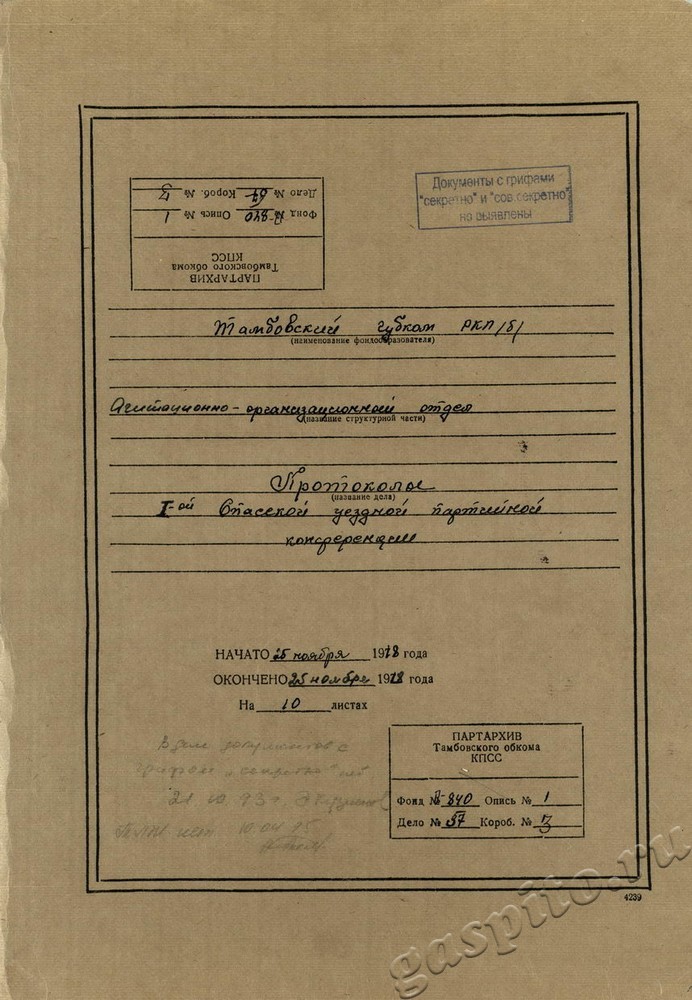 Документы с грифами
"секретно" и "сов.секретно"
не выявлены
ПАРТАРХИВ
Тамбовского обкома
КПСС
Фонд № 840 Опись № 1
Дело № Короб. № 3
Тамбовский губком РКП/б/
(наименование фондообразователя)
Агитационно-организационный отдел
(название структурной части)
Протоколы
(название дела)
I-ой Спасской уездной партийной
конференции
НАЧАТО 25 ноября 1918 года
ОКОНЧЕНО 25 ноября 1918 года
На 10 листах
В деле документов с
грифом "секретно" нет
21.10.93г
10.04.95
ПАРТАРХИВ
Тамбовского обкома
КПСС
Фонд № 840 Опись № 1
Дело № 57 Короб. № 3
4239
gaspito.ru